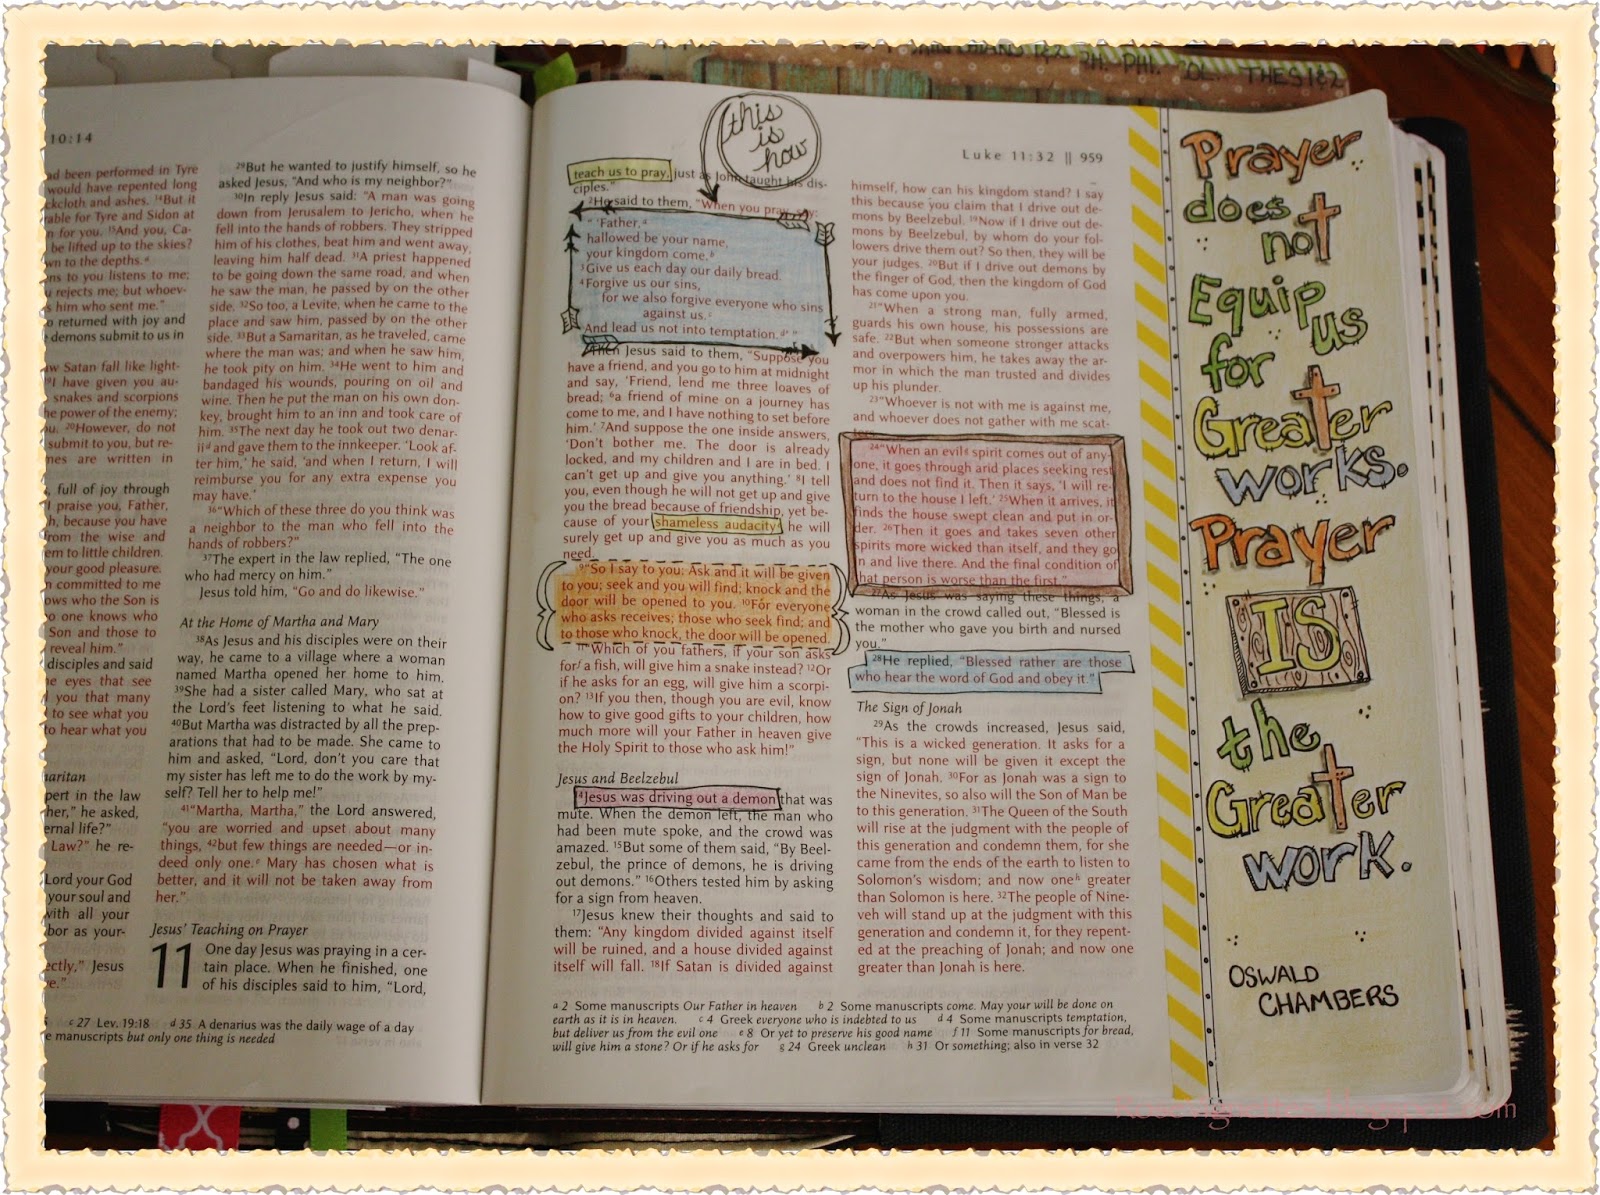 10:14
ad been performed in Tyre
would have repented long
ckcloth and ashes. 14But it
rable for Tyre and Sidon at
n for you. 15And you, Ca-
be lifted up to the skies?
wn to the depths.a
ens to you listens to me;
u rejects me; but whoev-
s him who sent me."
o returned with joy and
demons submit to us in
w Satan fall like light-
I have given you au-
snakes and scorpions
he power of the enemy;
u. 20However, do not
submit to you, but re-
mes are written in
, full of joy through
I praise you, Father,
h, because you have
from the wise and
em to little children.
your good pleasure.
n committed to me
ows who the Son is
o one knows who
Son and those to
reveal him."
disciples and said
he eyes that see
l you that many
to see what you
to hear what you
maritan
pert in the law
her," he asked,
ernal life?"
Law?" he re-
Lord your God
your soul and
with all your
bor as your-
ectly," Jesus
e."
29But he wanted to justify himself, so he
asked Jesus, "And who is my neighbor?"
30In reply Jesus said: "A man was going
down from Jerusalem to Jericho, when he
fell into the hands of robbers. They stripped
him of his clothes, beat him and went away,
leaving him half dead. 31A priest happened
to be going down the same road, and when
he saw the man, he passed by on the other
side. 32So too, a Levite, when he came to the
place and saw him, passed by on the other
side. 33But a Samaritan, as he traveled, came
where the man was; and when he saw him,
he took pity on him. 34He went to him and
bandaged his wounds, pouring on oil and
wine. Then he put the man on his own don-
key, brought him to an inn and took care of
him. 35The next day he took out two denar-
iid and gave them to the innkeeper. 'Look af-
ter him,' he said, 'and when I return, I will
reimburse you for any extra expense you
may have.'
36"Which of these three do you think was
a neighbor to the man who fell into the
hands of robbers?"
37The expert in the law replied, "The one
who had mercy on him."
Jesus told him, "Go and do likewise."
At the Home of Martha and Mary
38As Jesus and his disciples were on their
way, he came to a village where a woman
named Martha opened her home to him.
39She had a sister called Mary, who sat at
the Lord's feet listening to what he said.
40But Martha was distracted by all the prep-
arations that had to be made. She came to
him and asked, "Lord, don't you care that
my sister has left me to do the work by my-
self? Tell her to help me!"
41"Martha, Martha," the Lord answered,
"you are worried and upset about many
things, 42but few things are needed—or in-
deed only one.e Mary has chosen what is
better, and it will not be taken away from
her."
Jesus' Teaching on Prayer
11 One day Jesus was praying in a cer-
tain place. When he finished, one
of his disciples said to him, "Lord,
c 27 Lev. 19:18 d 35 A denarius was the daily wage of a day
e manuscripts but only one thing is needed
this is how
Luke 11:32 || 959
teach us to pray, just as John taught his dis-
ciples."
2He said to them, "When you pray, say:
" 'Father,a
hallowed be your name,
your kingdom come.b
3Give us each day our daily bread.
4Forgive us our sins,
for we also forgive everyone who sins
against us.c
And lead us not into temptation.d' "
Then Jesus said to them, "Suppose you
have a friend, and you go to him at midnight
and say, 'Friend, lend me three loaves of
bread; 6a friend of mine on a journey has
come to me, and I have nothing to set before
him.' 7And suppose the one inside answers,
'Don't bother me. The door is already
locked, and my children and I are in bed. I
can't get up and give you anything.' 8I tell
you, even though he will not get up and give
you the bread because of friendship, yet be-
cause of your shameless audacitye he will
surely get up and give you as much as you
need.
9"So I say to you: Ask and it will be given
to you; seek and you will find; knock and the
door will be opened to you. 10For everyone
who asks receives; those who seek find; and
to those who knock, the door will be opened.
11"Which of you fathers, if your son asks
forf a fish, will give him a snake instead? 12Or
if he asks for an egg, will give him a scorpi-
on? 13If you then, though you are evil, know
how to give good gifts to your children, how
much more will your Father in heaven give
the Holy Spirit to those who ask him!"
Jesus and Beelzebul
14Jesus was driving out a demon that was
mute. When the demon left, the man who
had been mute spoke, and the crowd was
amazed. 15But some of them said, "By Beel-
zebul, the prince of demons, he is driving
out demons." 16Others tested him by asking
for a sign from heaven.
17Jesus knew their thoughts and said to
them: "Any kingdom divided against itself
will be ruined, and a house divided against
itself will fall. 18If Satan is divided against
himself, how can his kingdom stand? I say
this because you claim that I drive out de-
mons by Beelzebul. 19Now if I drive out de-
mons by Beelzebul, by whom do your fol-
lowers drive them out? So then, they will be
your judges. 20But if I drive out demons by
the finger of God, then the kingdom of God
has come upon you.
21"When a strong man, fully armed,
guards his own house, his possessions are
safe. 22But when someone stronger attacks
and overpowers him, he takes away the ar-
mor in which the man trusted and divides
up his plunder.
23"Whoever is not with me is against me,
and whoever does not gather with me scat-
24"When an evilg spirit comes out of any-
one, it goes through arid places seeking rest
and does not find it. Then it says, 'I will re-
turn to the house I left.' 25When it arrives, it
finds the house swept clean and put in or-
der. 26Then it goes and takes seven other
spirits more wicked than itself, and they go
in and live there. And the final condition of
that person is worse than the first."
27As Jesus was saying these things, a
woman in the crowd called out, "Blessed is
the mother who gave you birth and nursed
you."
28He replied, "Blessed rather are those
who hear the word of God and obey it."
The Sign of Jonah
29As the crowds increased, Jesus said,
"This is a wicked generation. It asks for a
sign, but none will be given it except the
sign of Jonah. 30For as Jonah was a sign to
the Ninevites, so also will the Son of Man be
to this generation. 31The Queen of the South
will rise at the judgment with the people of
this generation and condemn them, for she
came from the ends of the earth to listen to
Solomon's wisdom; and now oneh greater
than Solomon is here. 32The people of Nine-
veh will stand up at the judgment with this
generation and condemn it, for they repent-
ed at the preaching of Jonah; and now one
greater than Jonah is here.
a 2 Some manuscripts Our Father in heaven b 2 Some manuscripts come. May your will be done on
earth as it is in heaven. c 4 Greek everyone who is indebted to us d 4 Some manuscripts temptation,
but deliver us from the evil one e 8 Or yet to preserve his good name f 11 Some manuscripts for bread,
will give him a stone? Or if he asks for g 24 Greek unclean h 31 Or something; also in verse 32
Prayer
does
not
Equip
us
for
Greater
works.
Prayer
IS
the
Greater
work.
OSWALD
CHAMBERS
PHI. COL. THES 1&2